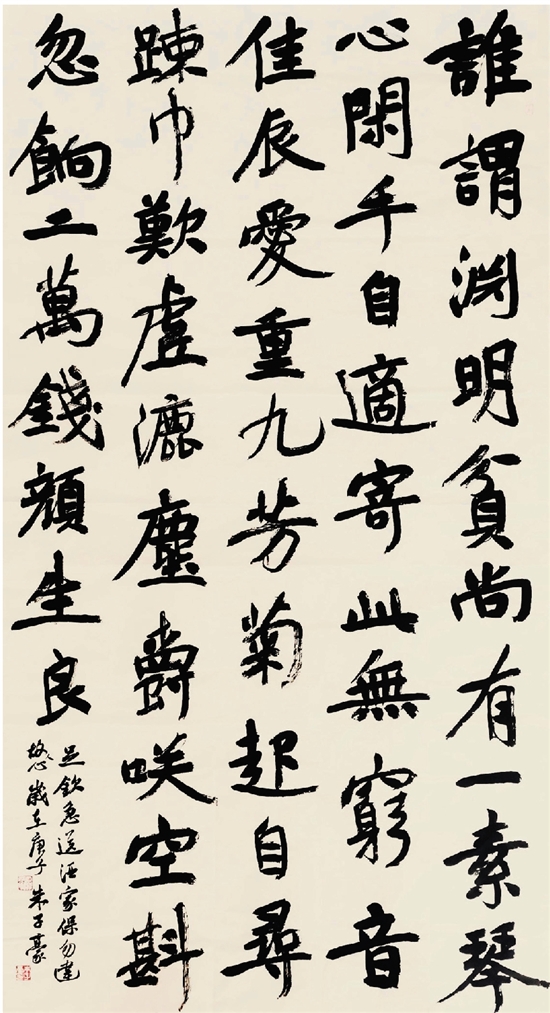 誰謂淵明貧尚有一素琴
心閑手自適寄此無窮音
佳辰愛重九芳菊起自尋
踈巾歎虛漉塵爵咲空斟
忽餉二萬錢顏生良
足欽急送酒家保勿違
心歲在庚子朱子豪